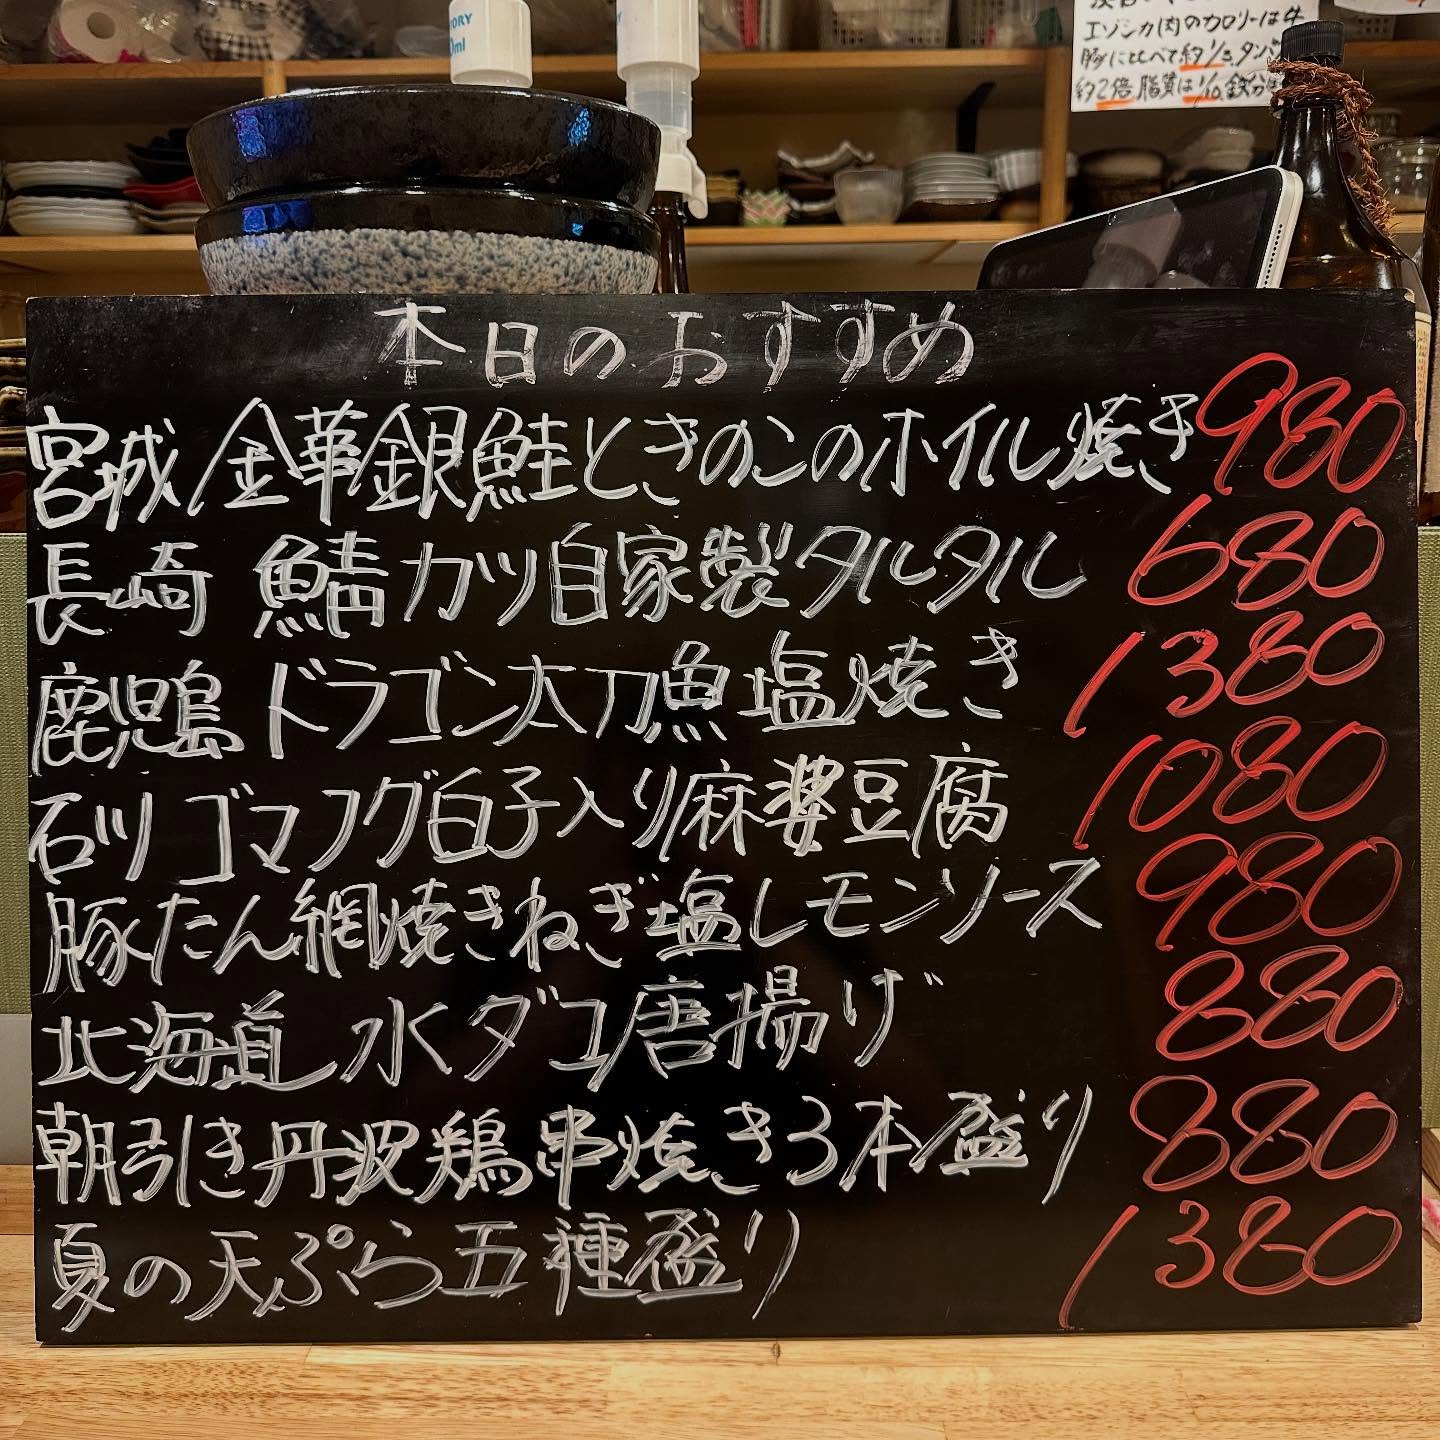 ORY
エゾシカ肉のカロリーは牛
豚に比べて約1/3タン
約2倍 脂質は1/10 鉄分は
本日のおすすめ
宮城 金華銀鮭ときのこのホイル焼き 980
長崎 鯖カツ自家製タルタル 680
鹿児島 ドラゴン太刀魚塩焼き 1380
石川 ゴマフグ白子入り麻婆豆腐 1080
豚たん網焼きねぎ塩レモンソース 980
北海道 水ダコ唐揚げ 880
朝引き丹波鶏串焼き3本盛り 880
夏の天ぷら五種盛り 1380